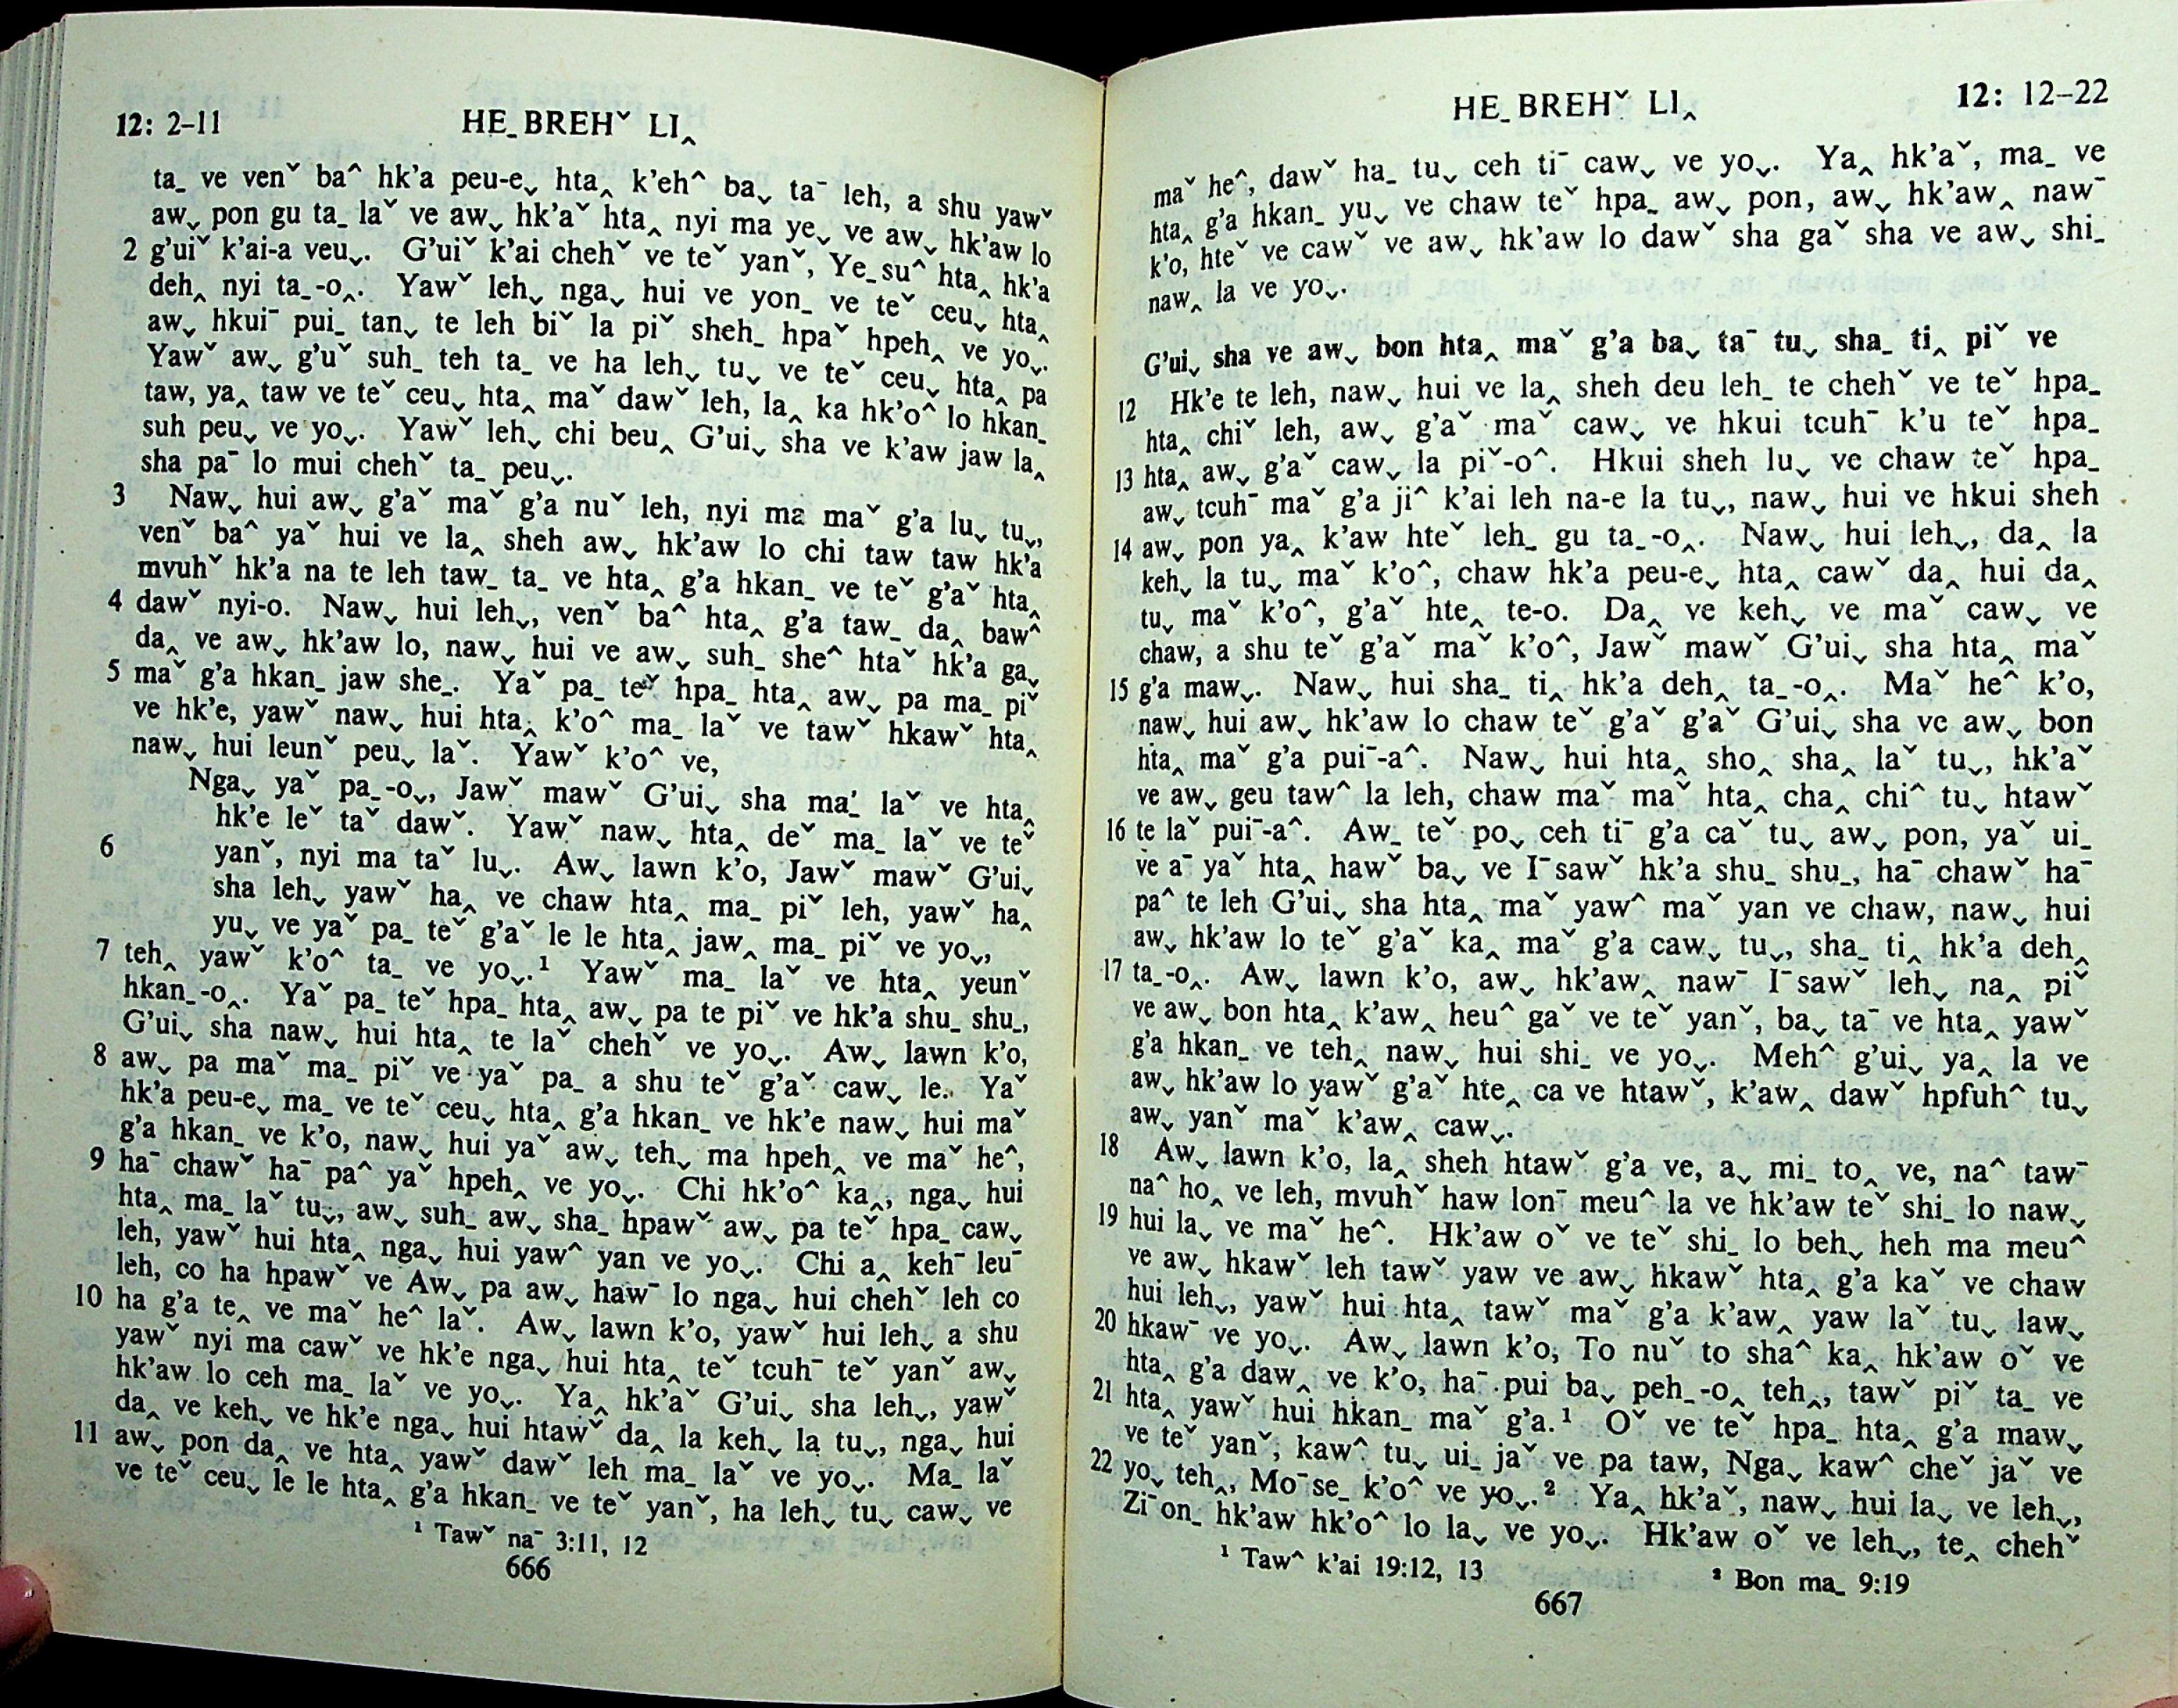 12: 2–11 HE˗ BREHˇ LI‸
ta˗ ve venˇ ba^ hk'a peu-eˬ hta‸ k'eh^ baˬ taˉ leh, a shu yawˇ
awˬ pon gu ta˗ laˇ ve awˬ hk'aˇ hta‸ nyi ma yeˬ ve awˬ hk'aw lo
2 g'uiˇ k'ai-a veuˬ. G'uiˇ k'ai chehˇ ve teˇ yanˇ, Ye˗su^ hta‸ hk'a
deh‸ nyi ta˗-o‸. Yawˇ lehˬ ngaˬ hui ve yon˗ ve teˇ ceuˬ hta‸
awˬ hkuiˉ pui˗ tanˬ te leh biˇ la piˇ sheh˗ hpaˇ hpeh‸ ve yoˬ.
Yawˇ awˬ g'uˇ suh˗ teh ta˗ ve ha lehˬ tuˬ ve teˇ ceuˬ hta‸ pa
taw, ya‸ taw ve teˇ ceuˬ hta‸ maˇ dawˇ leh, la‸ ka hk'o^ lo hkan˗
suh peuˬ ve yoˬ. Yawˇ lehˬ chi beu‸ G'uiˬ sha ve k'aw jaw la‸
sha paˉ lo mui chehˇ ta˗ peuˬ.
3 Nawˬ hui awˬ g'aˇ maˇ g'a nuˇ leh, nyi ma maˇ g'a luˬ tuˬ,
venˇ ba^ yaˇ hui ve la‸ sheh awˬ hk'aw lo chi taw taw hk'a
mvuhˇ hk'a na te leh taw˗ ta˗ ve hta‸ g'a hkan˗ ve teˇ g'aˇ hta‸
4 dawˇ nyi-o. Nawˬ hui lehˬ, venˇ ba^ hta‸ g'a taw˗ da‸ baw^
da‸ ve awˬ hk'aw lo, nawˬ hui ve awˬ suh˗ she^ htaˇ hk'a gaˬ
5 maˇ g'a hkan˗ jaw she˗. Yaˇ pa˗ teˇ hpa˗ hta‸ awˬ pa ma˗ piˇ
ve hk'e, yawˇ nawˬ hui hta‸ k'o^ ma˗ laˇ ve tawˇ hkawˇ hta‸
nawˬ hui leunˇ peuˬ laˇ. Yawˇ k'o^ ve,
Ngaˬ yaˇ pa˗-oˬ, Jawˇ mawˇ G'uiˬ sha ma˗ laˇ ve hta‸
hk'e leˇ taˇ dawˇ. Yawˇ nawˬ hta‸ deˇ ma˗ laˇ ve teˇ
6 yanˇ, nyi ma taˇ luˬ. Awˬ lawn k'o, Jawˇ mawˇ G'uiˬ
sha lehˬ yawˇ ha‸ ve chaw hta‸ ma˗ piˇ leh, yawˇ ha‸
yuˬ ve yaˇ pa˗ teˇ g'aˇ le le hta‸ jaw‸ ma˗ piˇ ve yoˬ,
7 teh‸ yawˇ k'o^ ta˗ ve yoˬ.¹ Yawˇ ma˗ laˇ ve hta‸ yeunˇ
hkan˗-o‸. Yaˇ pa˗ teˇ hpa˗ hta‸ awˬ pa te piˇ ve hk'a shu˗ shu˗,
G'uiˬ sha nawˬ hui hta‸ te laˇ chehˇ ve yoˬ. Awˬ lawn k'o,
8 awˬ pa maˇ ma˗ piˇ ve yaˇ pa˗ a shu teˇ g'aˇ cawˬ le. Yaˇ
hk'a peu-eˬ ma˗ ve teˇ ceuˬ hta‸ g'a hkan˗ ve hk'e nawˬ hui maˇ
g'a hkan˗ ve k'o, nawˬ hui yaˇ awˬ tehˬ ma hpeh‸ ve maˇ he^,
9 haˉ chawˇ haˉ pa^ yaˇ hpeh‸ ve yoˬ. Chi hk'o^ ka‸, ngaˬ hui
hta‸ ma˗ laˇ tuˬ, awˬ suh˗ awˬ sha˗ hpawˇ awˬ pa teˇ hpa˗ cawˬ
leh, yawˇ hui hta‸ ngaˬ hui yaw^ yan ve yoˬ. Chi a‸ kehˉ leuˉ
leh, co ha hpawˇ ve Awˬ pa awˬ hawˉ lo ngaˬ hui chehˇ leh co
10 ha g'a te‸ ve maˇ he^ laˇ. Awˬ lawn k'o, yawˇ hui lehˬ a shu
yawˇ nyi ma cawˇ ve hk'e ngaˬ hui hta‸ teˇ tcuhˉ teˇ yanˇ awˬ
hk'aw lo ceh ma˗ laˇ ve yoˬ. Ya‸ hk'aˇ G'uiˬ sha lehˬ, yawˇ
da‸ ve kehˬ ve hk'e ngaˬ hui htawˇ da‸ la kehˬ la tuˬ, ngaˬ hui
11 awˬ pon da‸ ve hta‸ yawˇ dawˇ leh ma˗ laˇ ve yoˬ. Ma˗ laˇ
ve teˇ ceuˬ le le hta‸ g'a hkan˗ ve teˇ yanˇ, ha lehˬ tuˬ cawˬ ve
¹ Tawˇ naˉ 3:11, 12
666
HE˗ BREHˇ LI‸ 12: 12–22
maˇ he^, dawˇ ha˗ tuˬ ceh tiˉ cawˬ ve yoˬ. Ya‸ hk'aˇ, ma˗ ve
hta‸ g'a hkan˗ yuˬ ve chaw teˇ hpa˗ awˬ pon, awˬ hk'aw‸ nawˉ
k'o, hteˇ ve cawˇ ve awˬ hk'aw lo dawˇ sha gaˇ sha ve awˬ shi˗
naw‸ la ve yoˬ.
G'uiˬ sha ve awˬ bon hta‸ maˇ g'a baˬ taˉ tuˬ sha˗ ti‸ piˇ ve
12 Hk'e te leh, nawˬ hui ve la‸ sheh deu leh˗ te chehˇ ve teˇ hpa˗
hta‸ chiˇ leh, awˬ g'aˇ maˇ cawˬ ve hkui tcuhˉ k'u teˇ hpa˗
13 hta‸ awˬ g'aˇ cawˬ la piˇ-o^. Hkui sheh luˬ ve chaw teˇ hpa˗
awˬ tcuhˉ maˇ g'a ji^ k'ai leh na-e la tuˬ, nawˬ hui ve hkui sheh
14 awˬ pon ya‸ k'aw hteˇ leh˗ gu ta˗-o‸. Nawˬ hui lehˬ, da‸ la
kehˬ la tuˬ maˇ k'o^, chaw hk'a peu-eˬ hta‸ cawˇ da‸ hui da‸
tuˬ maˇ k'o^, g'aˇ hte‸ te-o. Da‸ ve kehˬ ve maˇ cawˬ ve
chaw, a shu teˇ g'aˇ maˇ k'o^, Jawˇ mawˇ G'uiˬ sha hta‸ maˇ
15 g'a mawˬ. Nawˬ hui sha˗ ti‸ hk'a deh‸ ta˗-o‸. Maˇ he^ k'o,
nawˬ hui awˬ hk'aw lo chaw teˇ g'aˇ g'aˇ G'uiˬ sha ve awˬ bon
hta‸ maˇ g'a puiˉ-a^. Nawˬ hui hta‸ sho‸ sha‸ laˇ tuˬ, hk'aˇ
ve awˬ geu taw^ la leh, chaw maˇ maˇ hta‸ cha‸ chi^ tuˬ htawˇ
16 te laˇ puiˉ-a^. Aw˗ teˇ poˬ ceh tiˉ g'a caˇ tuˬ awˬ pon, yaˇ ui˗
ve aˉ yaˇ hta‸ hawˇ baˬ ve Iˉsawˇ hk'a shu˗ shu˗, haˉ chawˇ haˉ
pa^ te leh G'uiˬ sha hta‸ maˇ yaw^ maˇ yan ve chaw, nawˬ hui
awˬ hk'aw lo teˇ g'aˇ ka‸ maˇ g'a cawˬ tuˬ, sha˗ ti‸ hk'a deh‸
17 ta˗-o‸. Awˬ lawn k'o, awˬ hk'aw‸ nawˉ Iˉsawˇ lehˬ na‸ piˇ
ve awˬ bon hta‸ k'aw‸ heu^ gaˇ ve teˇ yanˇ, baˬ taˉ ve hta‸ yawˇ
g'a hkan˗ ve teh‸ nawˬ hui shi˗ ve yoˬ. Meh^ g'uiˬ ya‸ la ve
awˬ hk'aw lo yawˇ g'aˇ hte‸ ca ve htawˇ, k'aw‸ dawˇ hpfuh^ tuˬ
awˬ yanˇ maˇ k'aw‸ cawˬ.
18 Awˬ lawn k'o, la‸ sheh htawˇ g'a ve, aˬ mi˗ to‸ ve, na^ tawˉ
na^ ho‸ ve leh, mvuhˇ haw lonˉ meu^ la ve hk'aw teˇ shi˗ lo nawˬ
19 hui laˬ ve maˇ he^. Hk'aw oˇ ve teˇ shi˗ lo behˬ heh ma meu^
ve awˬ hkawˇ leh tawˇ yaw ve awˬ hkawˇ hta‸ g'a kaˇ ve chaw
hui lehˬ, yawˇ hui hta‸ tawˇ maˇ g'a k'aw‸ yaw laˇ tuˬ lawˬ
20 hkawˉ ve yoˬ. Awˬ lawn k'o, To nuˇ to sha^ ka‸ hk'aw oˇ ve
hta‸ g'a daw‸ ve k'o, haˉ pui baˬ peh˗-o‸ teh‸, tawˇ piˇ ta˗ ve
21 hta‸ yawˇ hui hkan˗ maˇ g'a.¹ Oˇ ve teˇ hpa˗ hta‸ g'a mawˬ
ve teˇ yanˇ, kaw^ tuˬ ui˗ jaˇ ve pa taw, Ngaˬ kaw^ cheˇ jaˇ ve
22 yoˬ teh‸, Moˉse˗ k'o^ ve yoˬ.² Ya‸ hk'aˇ, nawˬ hui laˬ ve lehˬ,
Ziˉon˗ hk'aw hk'o^ lo laˬ ve yoˬ. Hk'aw oˇ ve lehˬ, te‸ chehˇ
¹ Taw^ k'ai 19:12, 13 ² Bon ma˗ 9:19
667